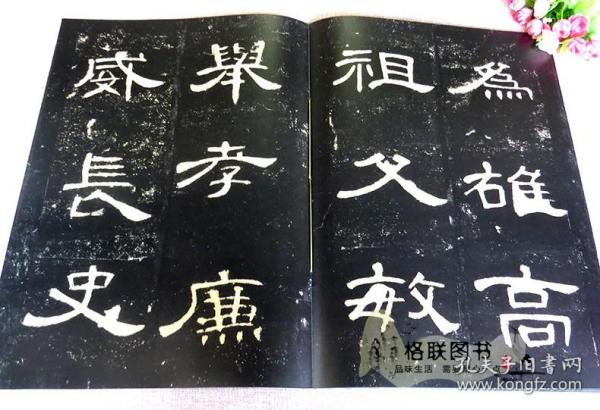 為雄高
祖父敏
舉孝廉
威長史
格联图书
品味生活 需
孔夫子旧书网
www.kongfz.com